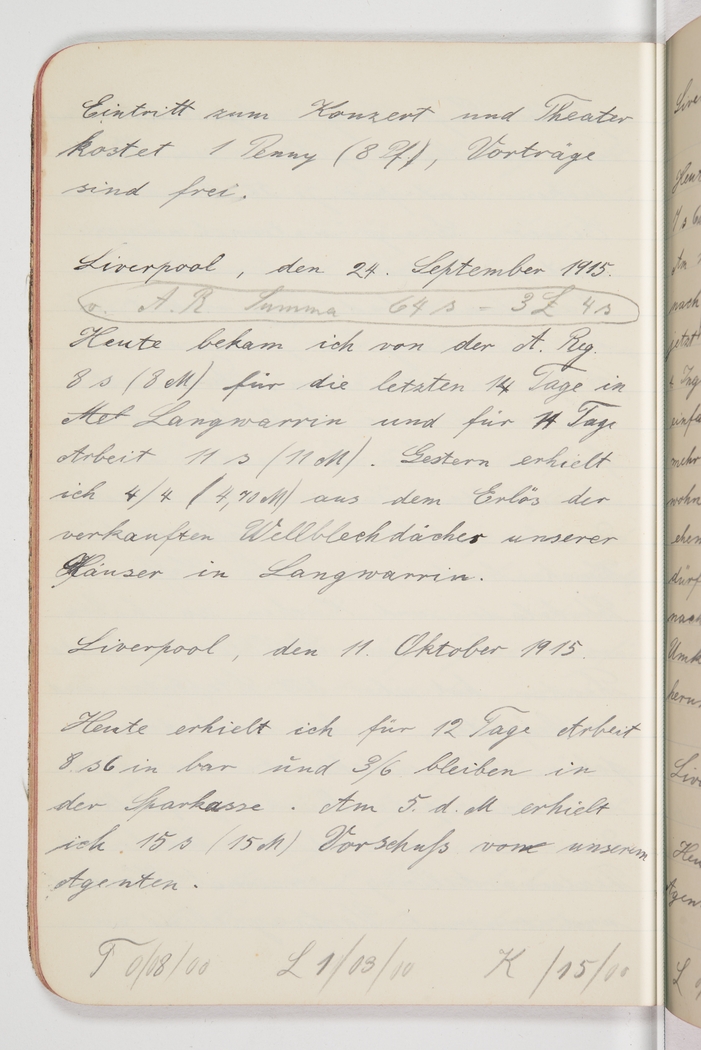 Eintritt zum Konzert und Theater
kostet 1 Penny (8 Pf.), Vorträge
sind frei.
Liverpool, den 24. September 1915.
v. A. R Summa 64 s - 3£ 4s
Heute bekam ich von der A. Reg.
8 s (8 M) für die letzten 14 Tage in
Langwarrin und für 14 Tage
Arbeit 11 s (11 M). Gestern erhielt
ich 4/4 (4,70 M) aus dem Erlös der
verkauften Wellblechdächer unserer
Häuser in Langwarrin.
Liverpool, den 11. Oktober 1915.
Heute erhielt ich für 12 Tage Arbeit
8 s6 in bar und 3/6 bleiben in
der Sparkasse. Am 5. d. M erhielt
ich 15 s (15 M) Vorschuß von unserem
Agenten.
T 0/08/00 L 1/03/00 K /15/00